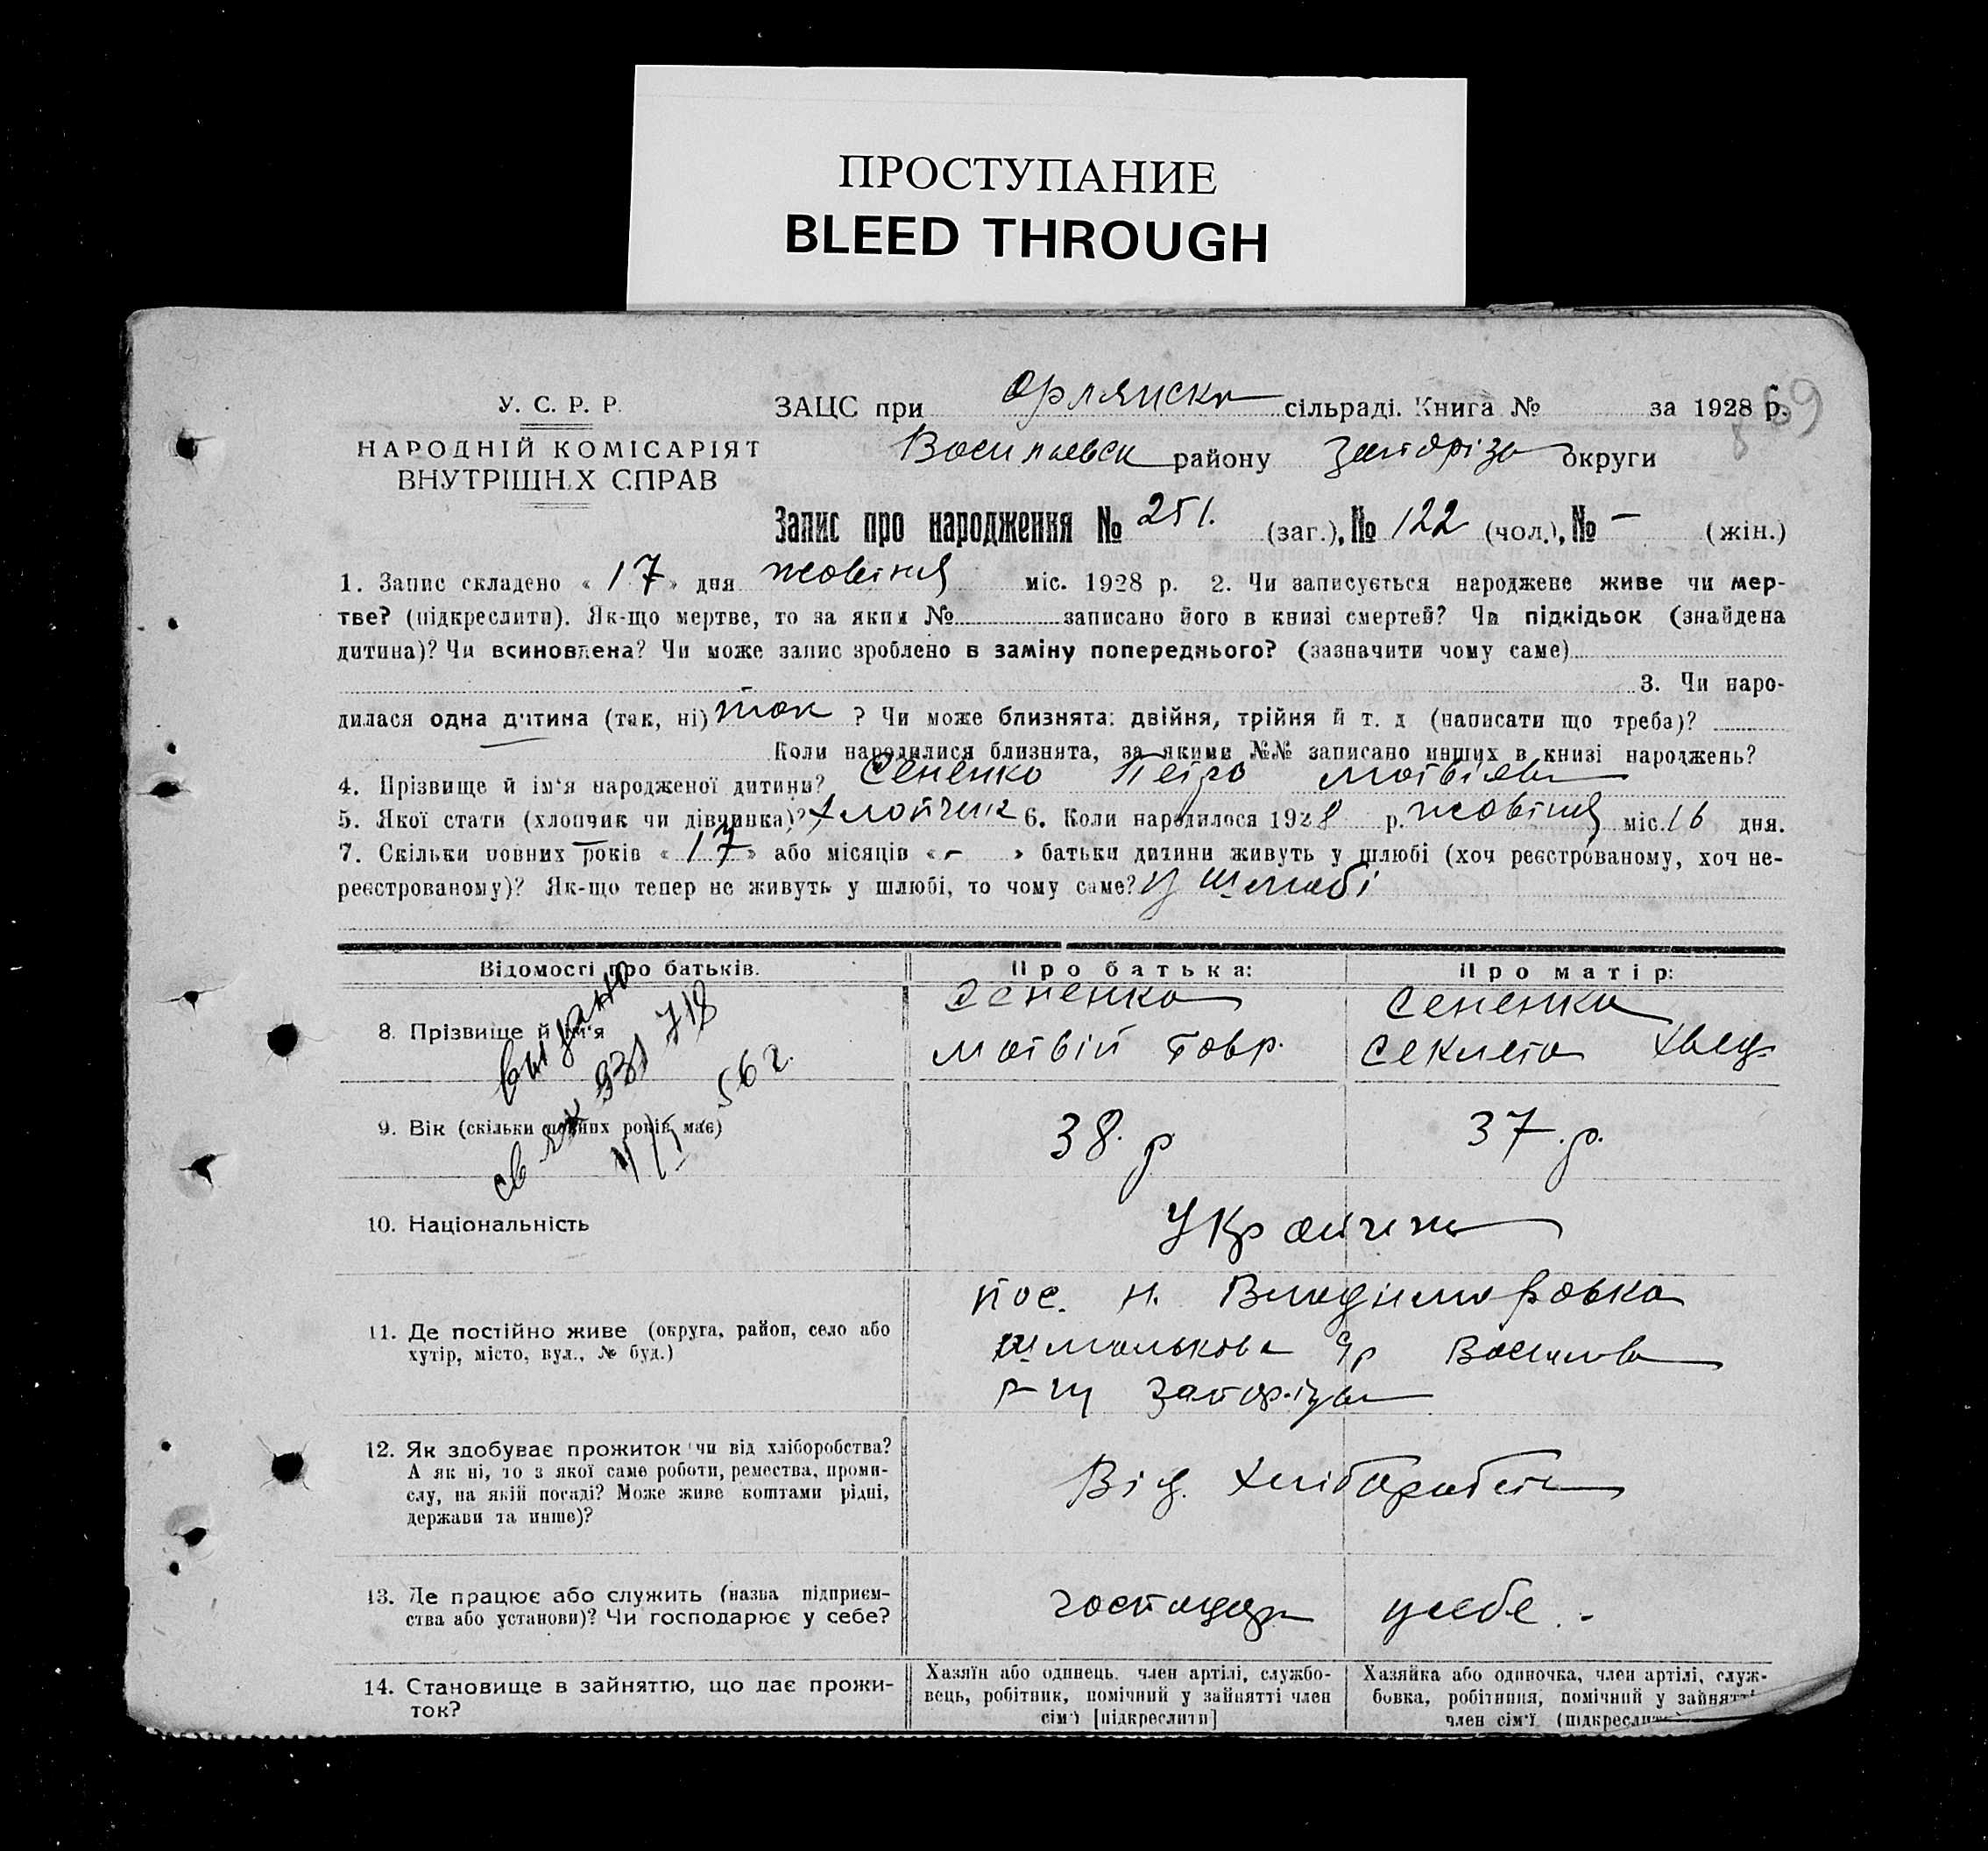 ПРОСТУПАНИЕ
BLEED THROUGH
69
У. С. Р. Р.
НАРОДНІЙ КОМІСАРІЯТ
ВНУТРІШНІХ СПРАВ
ЗАЦС при Орлянск сільраді. Книга № за 1928 р.
Василівськ району Запоріз округи
Запис про народження № 251. (заг.), № 122 (чол.), № – (жін.)
1. Запис складено « 17 » дня жовтня міс. 1928 р. 2. Чи записується народжене живе чи мер-
тве? (підкреслити). Як-що мертве, то за яким № записано його в книзі смертей? Чи підкідьок (знайдена
дитина)? Чи всиновлена? Чи може запис зроблено в заміну попереднього? (зазначити чому саме)
3. Чи наро-
дилася одна дитина (так, ні) так ? Чи може близнята: двійня, трійня й т. д (написати що треба)?
Коли народилися близнята, за якими №№ записано инших в книзі народжень?
4. Прізвище й ім'я народженої дитини? Сененко Петро Матвієв
5. Якої стати (хлопчик чи дівчинка)? Хлопчик 6. Коли народилося 1928 р. жовтня міс. 16 дня.
7. Скільки повних років « 17 » або місяців « – » батьки дитини живуть у шлюбі (хоч реєстрованому, хоч не-
реєстрованому)? Як-що тепер не живуть у шлюбі, то чому саме? У шлюбі
Відомості про батьків. Про батька: Про матір:
8. Прізвище й ім'я
Сененко
Матвій Гавр.
Сененко
Секлета Хвед
выдано
св 931 718
56 г.
9. Вік (скільки повних років має)
38. р
37. р.
10. Національність
Українц
11. Де постійно живе (округа, район, село або
хутір, місто, вул., № буд.)
пос. н. Владимировка
Василів
р-ну Запоріз
12. Як здобуває прожиток чи від хліборобства?
А як ні, то з якої саме роботи, ремества, проми-
слу, на якій посаді? Може живе коштами рідні,
держави та инше)?
Від. хлібороб
13. Де працює або служить (назва підприєм-
ства або установи)? Чи господарює у себе?
господар у себе. -
14. Становище в зайняттю, що дає прожи-
ток?
Хазяїн або одинець, член артілі, службо-
вець, робітник, помічний у зайнятті член
сім'ї [підкреслити]
Хазяйка або одиночка, член артілі, служ-
бовка, робітниця, помічний у зайнятті
член сім'ї (підкреслит